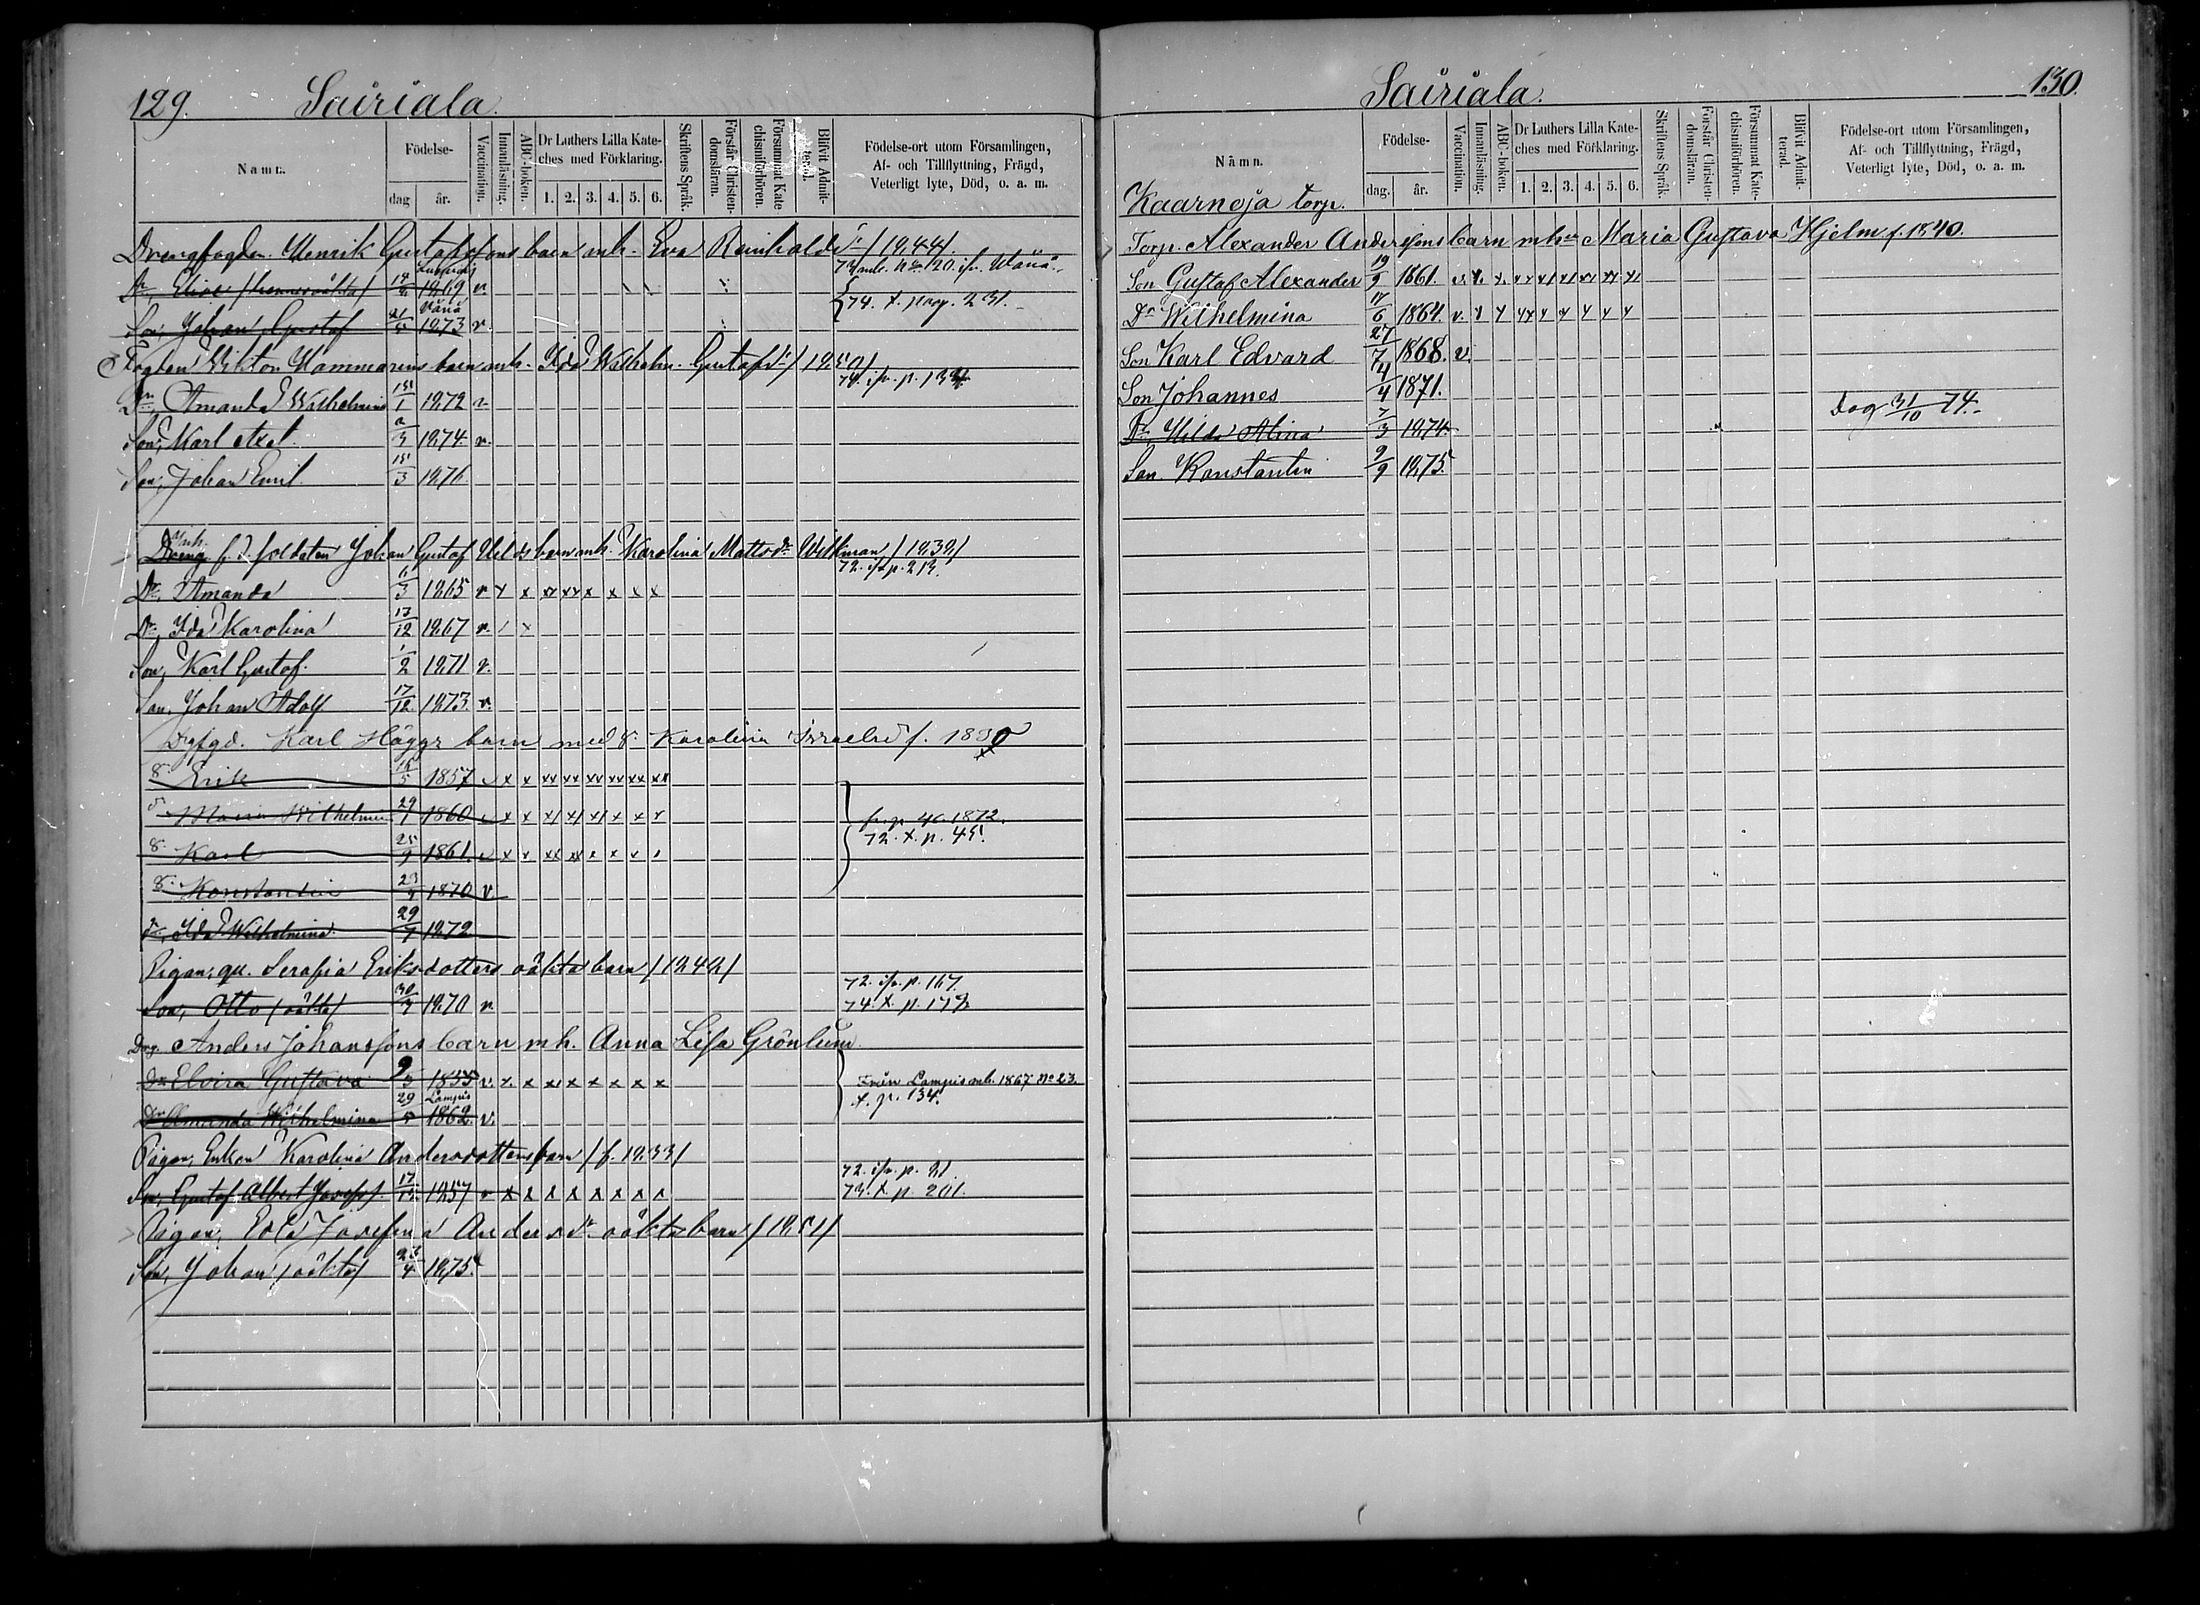 129. Sairiala.
Namn.
Födelse-
dag
år.
Vaccination.
Innanläsning.
ABC-boken.
Dr Luthers Lilla Kate-
ches med Förklaring.
1. 2. 3. 4. 5. 6.
Skriftens Språk.
Förstår Christen-
domsläran.
Försummat Kate
chismiförhören.
Blifvit Admit-
terad.
Födelse-ort utom Församlingen,
Af- och Tillflyttning, Frägd,
Veterligt lyte, Död, o. a. m.
Drengfogden Henrik Gustafssons barn mh. Eva Reinholds dr /1844/
1869 v. 73 inb. No 120. ifr. Wånå
Son, Johan Gustaf 21/5 Vånå 1873 v. 74. x. pag. 231.
Fogden Viktor Hammarens barn mh. Ida Wilhelm. Gustafsd /1850/
Dr, Amanda Wilhelmina 15/1 1872 v. 74. ifr. p. 134
Son, Karl Axel 2/3 1874 v.
Son, Johan Emil 15/3 1876
f.d. soldaten Johan Gustaf Uelds barn mh. Karolina Mattsdr Wikman /1839/
Dr, Amanda 6/3 1865 v x x xx xx x x x x 72. ifr. p. 213.
Dr, Ida Karolina 13/12 1867 v. / x
Son, Karl Gustaf 1/2 1871 v.
Son, Johan Adolf 17/12 1873 v.
Dgfgd. Karl Häggs barn med h. Karolina Israelsd f. 1830
S. Erik 15/5 1857 v x x xx xx xx xx xx xx
Maria Wilhelmina 29/1 1860 v x x x/ x/ x/ x x x fr. p. 46 1872.
S. Karl 25/9 1861. v x x xx xx x x x x 72. x. p. 45.
S. Konstantin 23/9 1870 v.
dr, Ida Wilhelmina 29/7 1872
Pigan, qv. Serafia Eriksdotters oäkta barn /1842/
Son, Otto (oäkta) 30/3 1870 v. 72. ifr. p. 167.
74. x. p. 179
Drg. Anders Johanssons barn mh. Anna Lisa Grönlund
Dr Elvira Gustava 9/3 1855 v. x. x xx x x x x x Från Lampis anb. 1867 No 23.
Dr Amanda Wilhelmina 29/5 Lampis 1862. v. x. p. 134.
Pigan, Enkan Karolina Andersdotters barn /f. 1833/
Son, Gustaf Albert Josefss. 17/12 1857 v x x x x x x x x 72. ifr. p. 21.
73. x p. 201.
Pigan, Eva Josefina Andersdr. oäkta barn /1851/
Son, Johan (oäkta) 23/4 1875.
Sairiala. 130.
Namn.
Födelse-
dag.
år.
Vaccination.
Innanläsning.
ABC-boken.
Dr Luthers Lilla Kate-
ches med Förklaring.
1. 2. 3. 4. 5. 6.
Skriftens Språk.
Förstår Christen-
domsläran.
Försummat Kate-
chismiförhören.
Blifvit Admit-
terad.
Födelse-ort utom Församlingen,
Af- och Tillflyttning, Frägd,
Veterligt lyte, Död, o. a. m.
Kaarnoja torp.
Torp. Alexander Anderssons barn mhu Maria Gustava Hjelm f. 1840.
Son Gustaf Alexander 19/9 1861. v. x. x. xx x/ x/ x/ x/ x/
Dr Wilhelmina 17/6 1864. v. x x xx x x x x x
Son Karl Edvard 27/7 1868. v.
Son Johannes 4/4 1871.
Dr, Hilda Alina 7/3 1874. dog 31/10 74.
Son Konstantin 9/9 1875.